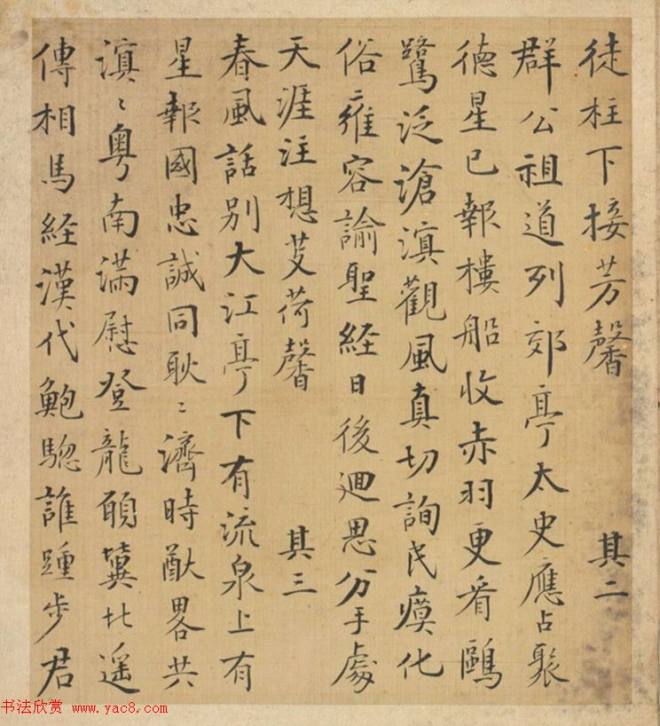 徒柱下接芳馨 其二
群公祖道列郊亭太史應占聚
德星已報樓船收赤羽更看鷗
鷺泛滄溟觀風真切詢民瘼化
俗雍容諭聖経日後迴思分手處
天涯注想芰荷馨 其三
春風話別大江亭下有流泉上有
星報國忠誠同耿〻濟時猷畧共
溟〻粤南滿慰登龍願冀北遥
傳相馬経漢代鮑驄誰踵步君
书法欣赏 www.yac8.com